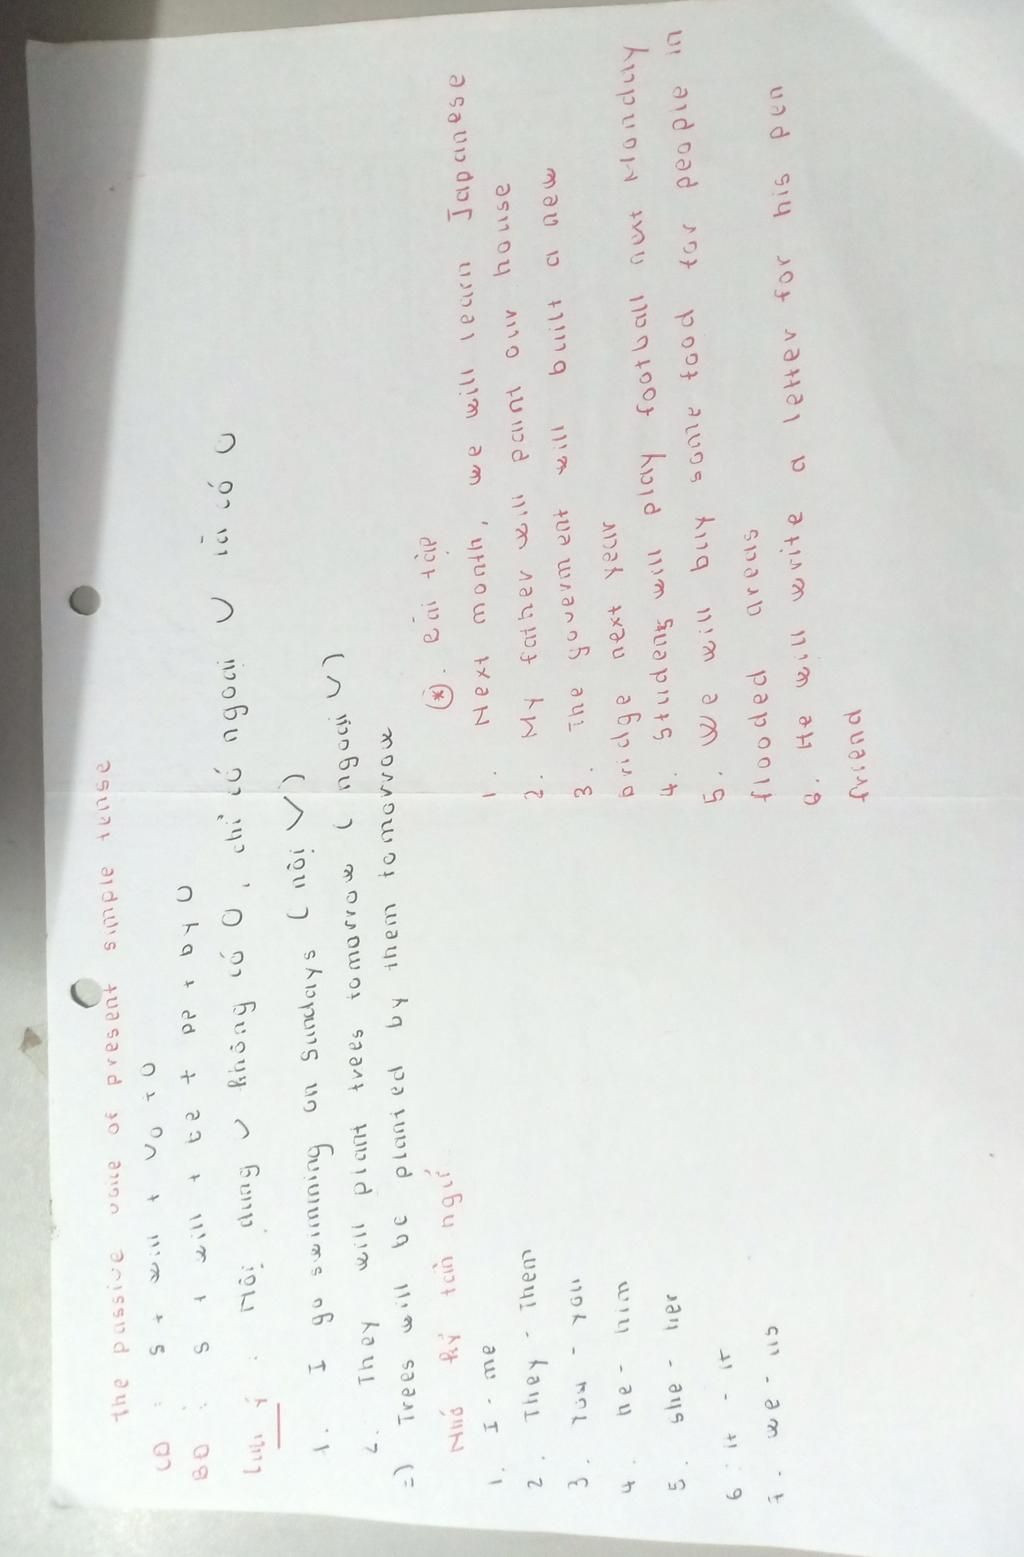 the passive voice of present simple tense
CĐ : S + will + V0 + O
BĐ : S + will + be + pp + by O
Lưu ý : Nội dung V không có O, chỉ có ngoại V là có O
1. I go swimming on Sundays ( nội V )
2. They will plant trees tomorrow ( ngoại V )
=) Trees will be planted by them tomorrow
Nhớ kỹ tân ngữ
1. I - me
2. They - Them
3. You - you
4. he - him
5. she - her
6. it - it
7. we - us
(*). Bài tập
1. Next month, we will learn Japanese
2. My father will paint our house
3. The goverment will built a new
bridge next year
4. Students will play football next Monday
5. We will buy some food for people in
flooded areas
6. He will write a letter for his pen
friend